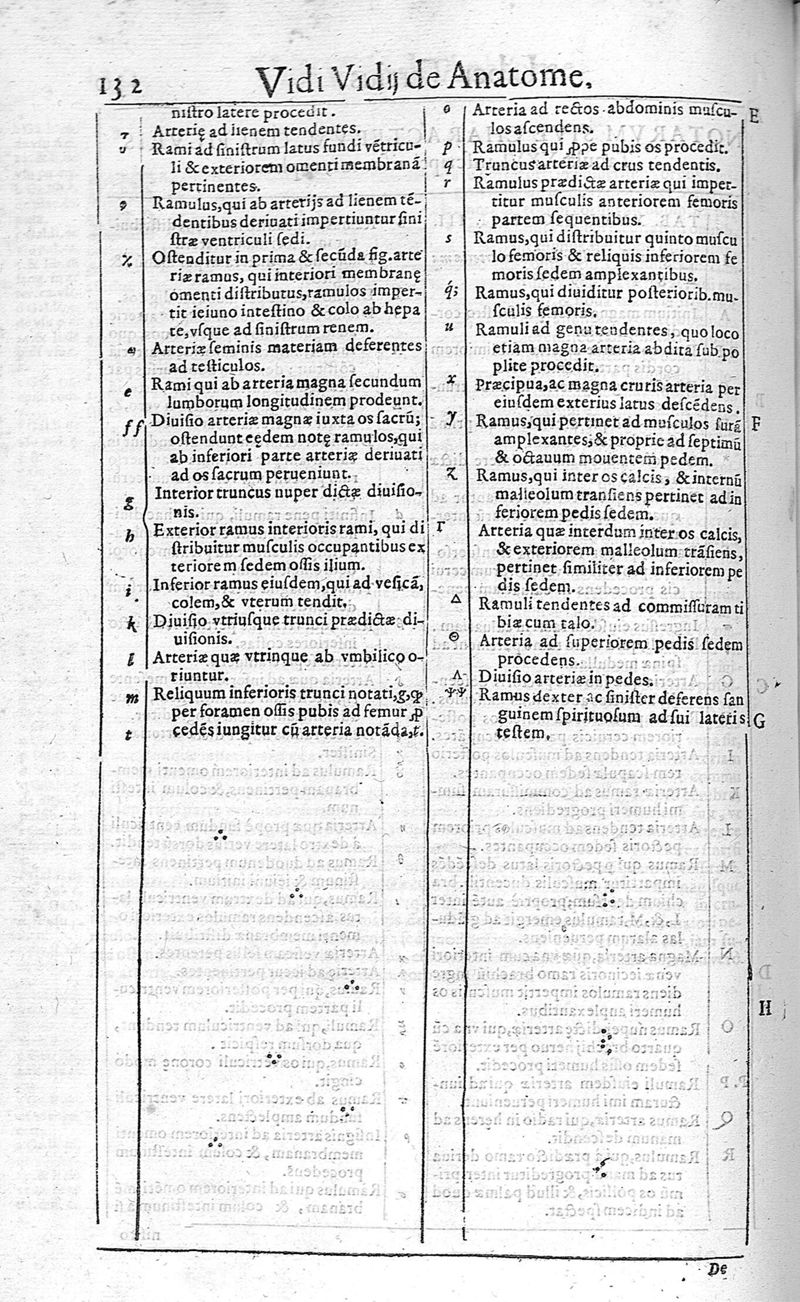 132 Vidi Vidij de Anatome.
nistro latere procedit.
τ Arterię ad lienem tendentes.
υ Rami ad sinistrum latus fundi vētricu-
li & exteriorem omenti membranā
pertinentes.
φ Ramulus, qui ab arterijs ad lienem tē-
dentibus deriuati impertiuntur sini
stræ ventriculi sedi.
χ Ostenditur in prima & secūda fig. arte
riæ ramus, qui interiori membranę
omenti distributus, ramulos imper-
tit ieiuno intestino & colo ab hepa
te, vsque ad sinistrum renem.
ω Arteriæ seminis materiam deferentes
ad testiculos.
e Rami qui ab arteria magna secundum
lumborum longitudinem prodeunt.
ff Diuisio arteriæ magnæ iuxta os sacrū;
ostendunt eędem notę ramulos, qui
ab inferiori parte arteriæ deriuati
ad os sacrum perueniunt.
g Interior truncus nuper dictæ diuisio-
nis.
h Exterior ramus interioris rami, qui di
stribuitur musculis occupantibus ex
teriorem sedem ossis ilium.
i Inferior ramus eiusdem, qui ad vesicā,
colem, & vterum tendit.
k Diuisio vtriusque trunci prædictæ di-
uisionis.
l Arteriæ quæ vtrinque ab vmbilico o-
riuntur.
m Reliquum inferioris trunci notati, g, ꝙ
per foramen ossis pubis ad femur ꝓ
t cedēs iungitur cū arteria notāda, t.
o Arteria ad rectos abdominis muscu- E
los ascendens.
p Ramulus qui ꝓpe pubis os procedit.
q Truncus arteriæ ad crus tendentis.
r Ramulus prædictæ arteriæ qui imper-
titur musculis anteriorem femoris
partem sequentibus.
s Ramus, qui distribuitur quinto muscu
lo femoris & reliquis inferiorem fe
moris sedem amplexantibus.
q; Ramus, qui diuiditur posteriorib. mu-
sculis femoris.
u Ramuli ad genu tendentes, quo loco
etiam magna arteria abdita sub po
plite procedit.
x Præcipua, ac magna cruris arteria per
eiusdem exterius latus descēdens.
y Ramus, qui pertinet ad musculos surā F
amplexantes, & proprie ad septimū
& octauum mouentem pedem.
z Ramus, qui inter os calcis, & internū
malleolum transiens pertinet ad in
feriorem pedis sedem.
Γ Arteria quæ interdum inter os calcis,
& exteriorem malleolum trāsiens,
pertinet similiter ad inferiorem pe
dis sedem.
Δ Ramuli tendentes ad commissuram ti
biæ cum talo.
Θ Arteria ad superiorem pedis sedem
procedens.
Λ Diuisio arteriæ in pedes.
ΨΨ Ramus dexter ac sinister deferens san
guinem spirituosum ad sui lateris G
testem.
H
De